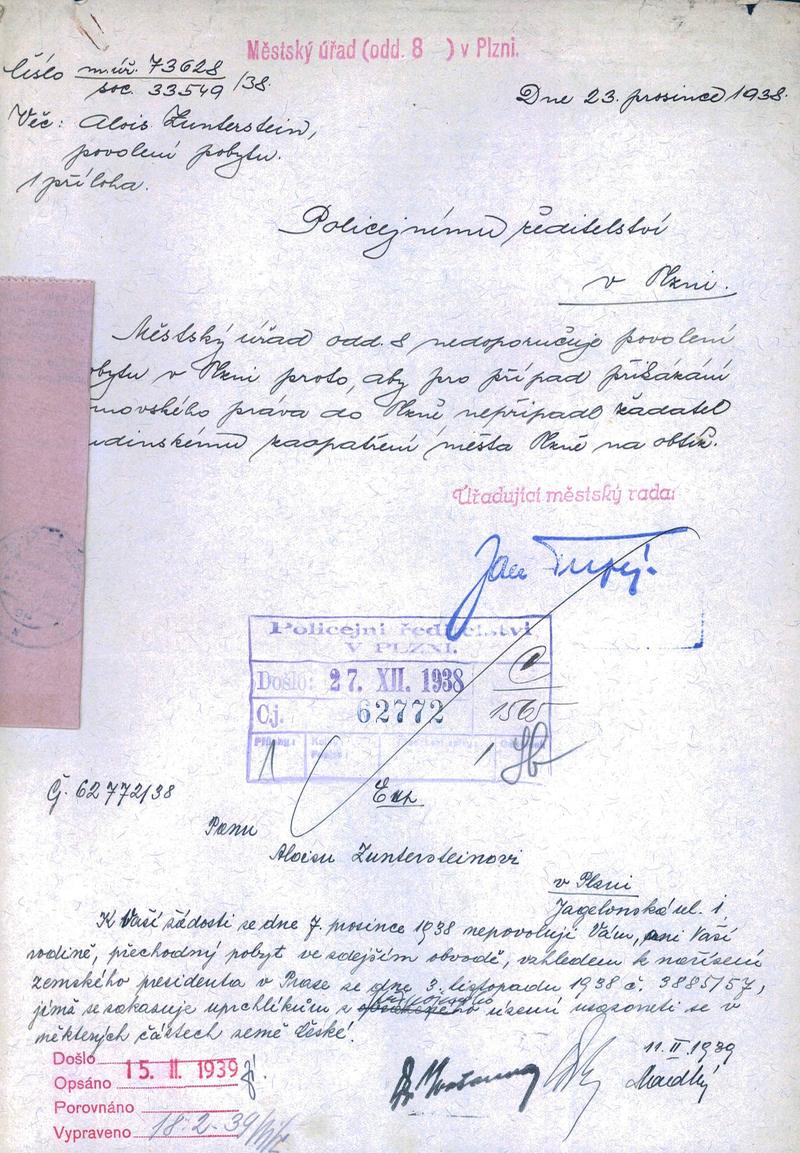 Městský úřad (odd. 8 ) v Plzni.
Číslo m.úř. 73628
soc. 33549 /38.
Dne 23. prosince 1938.
Věc: Alois Zunterstein,
povolení pobytu.
1 příloha.
Policejnímu ředitelství
v Plzni.
Městský úřad odd. 8 nedoporučuje povolení
obytu v Plzni proto, aby pro případ přiřákání
movského práva do Plzně nepřipadl žadatel
udinskému zaopatření města Plzně na obtíž.
Úřadující městský rada:
Policejní ředitelství
V PLZNI.
Došlo: 27. XII. 1938
C.j. 62772
1565
Přílohy:
1
Č. 62772/38
Exp
Panu
Aloisu Zuntersteinovi
v Plzni
Jagelonská ul. 1
K Vaší žádosti ze dne 7. prosince 1938 nepovoluji Vám, ani Vaší
rodině, přechodný pobyt ve zdejším obvodě, vzhledem k nařízení
zemského presidenta v Praze ze dne 3. listopadu 1938 č. 3885/57,
jímž se zakazuje uprchlíkům z území usazovati se v
některých částech země České.
Došlo 15. II. 1939
Opsáno
Porovnáno
Vypraveno 18.-2-39
11. II. 1939